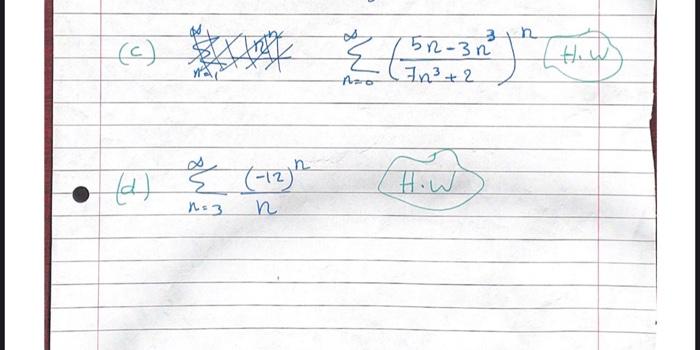 (c) ∞ Σ n=0 ( (5n-3n³) / (7n³+2) )ⁿ H.W
(d) ∞ Σ n=3 (-12)ⁿ / n H.W